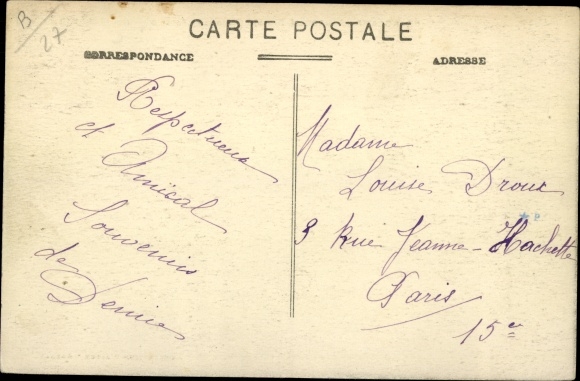 B/27
CARTE POSTALE
CORRESPONDANCE
ADRESSE
Respectueux
et Amical
Souvenir
de
Denise
Madame
Louise Droux
3 Rue Jeanne-Hachette
Paris
15e